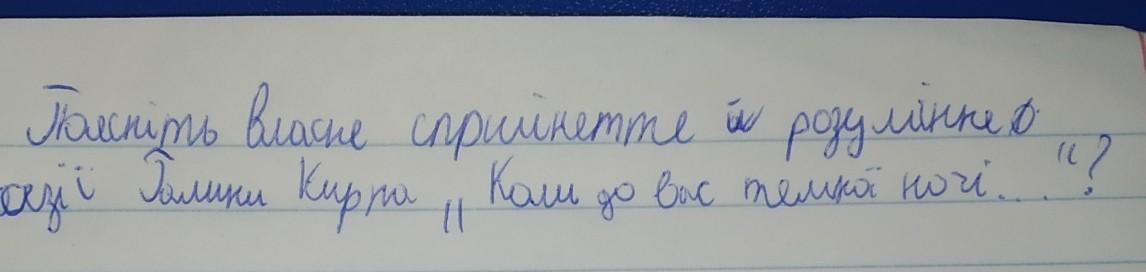 Поясніть власне сприйняття й розуміння
езії Галини Кирпа „Коли до вас темної ночі..."?